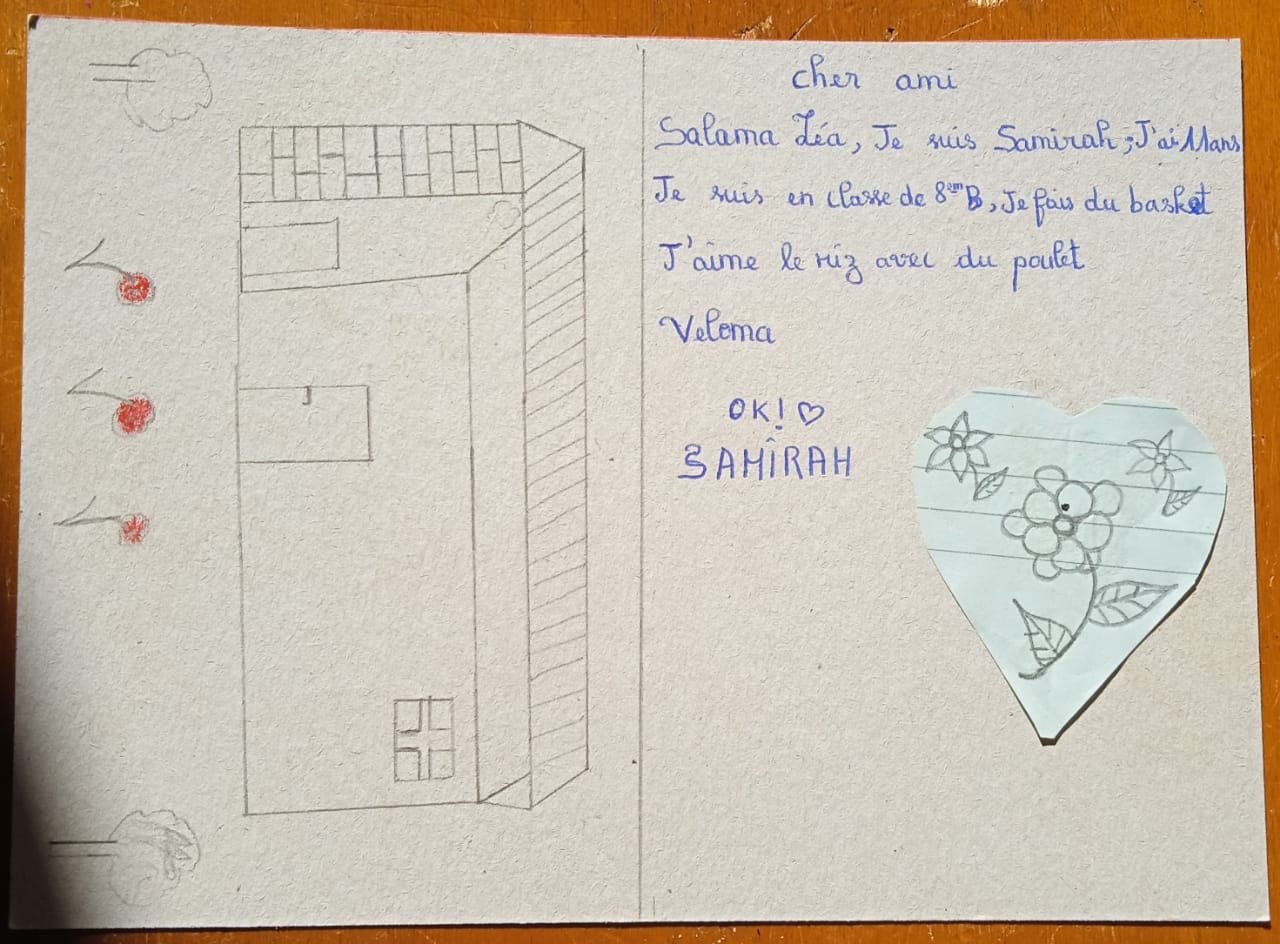 cher ami
Salama Léa, Je suis Samirah ; J'ai 11ans
Je suis en classe de 8em B, Je fais du basket
J'aime le riz avec du poulet
Veloma
OK! ♡
SAMIRAH